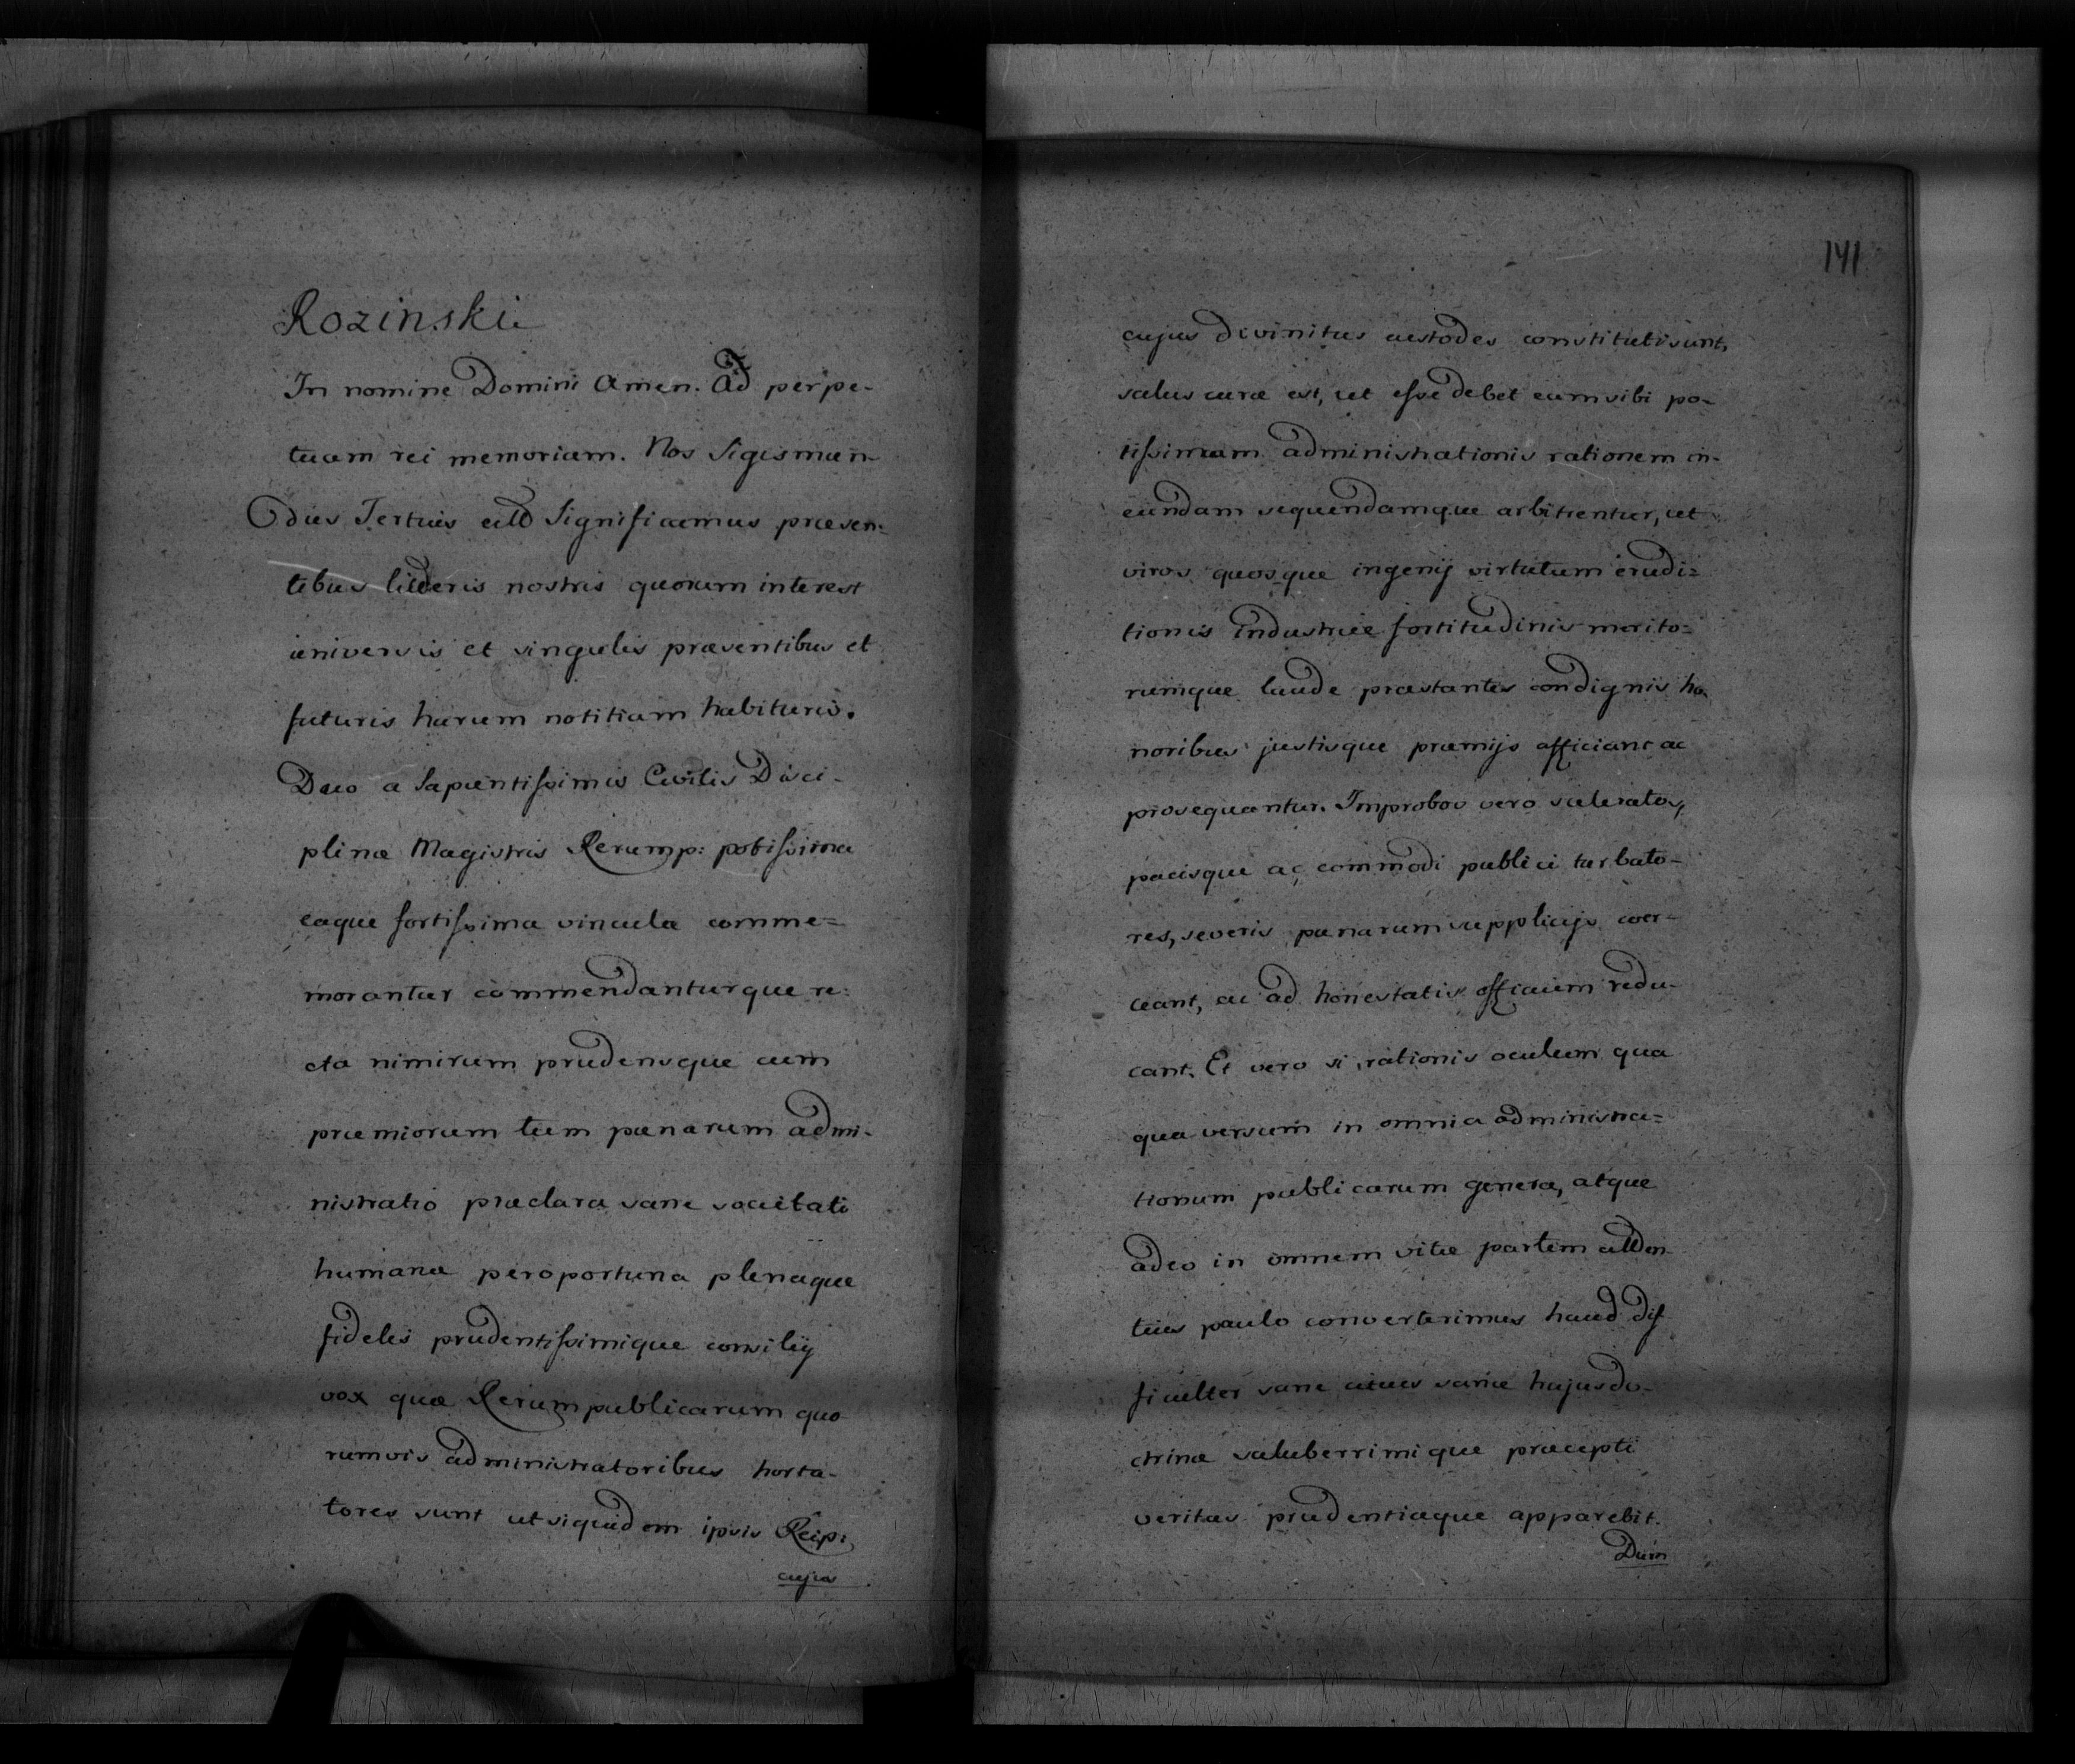 Rozinskii
In nomine Domini Amen. Ad perpe-
tuam rei memoriam. Nos Sigismun-
dus Tertius ettc Significamus præsen-
tibus litteris nostris quorum interest
universis et singulis præsentibus et
futuris harum notitiam habituris.
Duo a Sapientissimis Civilis Disci-
plinæ Magistris Rerump: potissima
eaque fortissima vincula comme=
morantur commendanturque re:
cta nimirum prudensque cum
præmiorum tum pænarum admi-
nistratio præclara sane societati
humanæ peroportuna plenaque
fidelis prudentissimique consilij
vox quæ Rerumpublicarum quo
rumvis administratoribus horta-
tores sunt ut siquidem ipsis Reip:
cujus
141
cujus divinitus custodes constituti sunt,
salus curæ est, ut esse debet eum sibi po-
tissimam administrationis rationem in-
eundam sequendamque arbitrentur, ut
viros quosque ingenij virtutum erudi=
tionis industriæ fortitudinis merito=
rumque laude præstantes condignis ho
noribus justisque præmijs afficiant ac
prosequantur. Improbos vero sceleratos,
pacisque ac commodi publici turbato-
res, severis pænarum supplicijs coer-
ceant, ac ad honestatis officium redu-
cant. Et vero si rationis oculum qua
qua versum in omnia administra=
tionum publicarum genera, atque
adeo in omnem vitæ partem atten
tius paulo converterimus haud dif
ficulter sane hujus do-
ctrinæ saluberrimique præcepti
veritas prudentiaque apparebit.
Dum